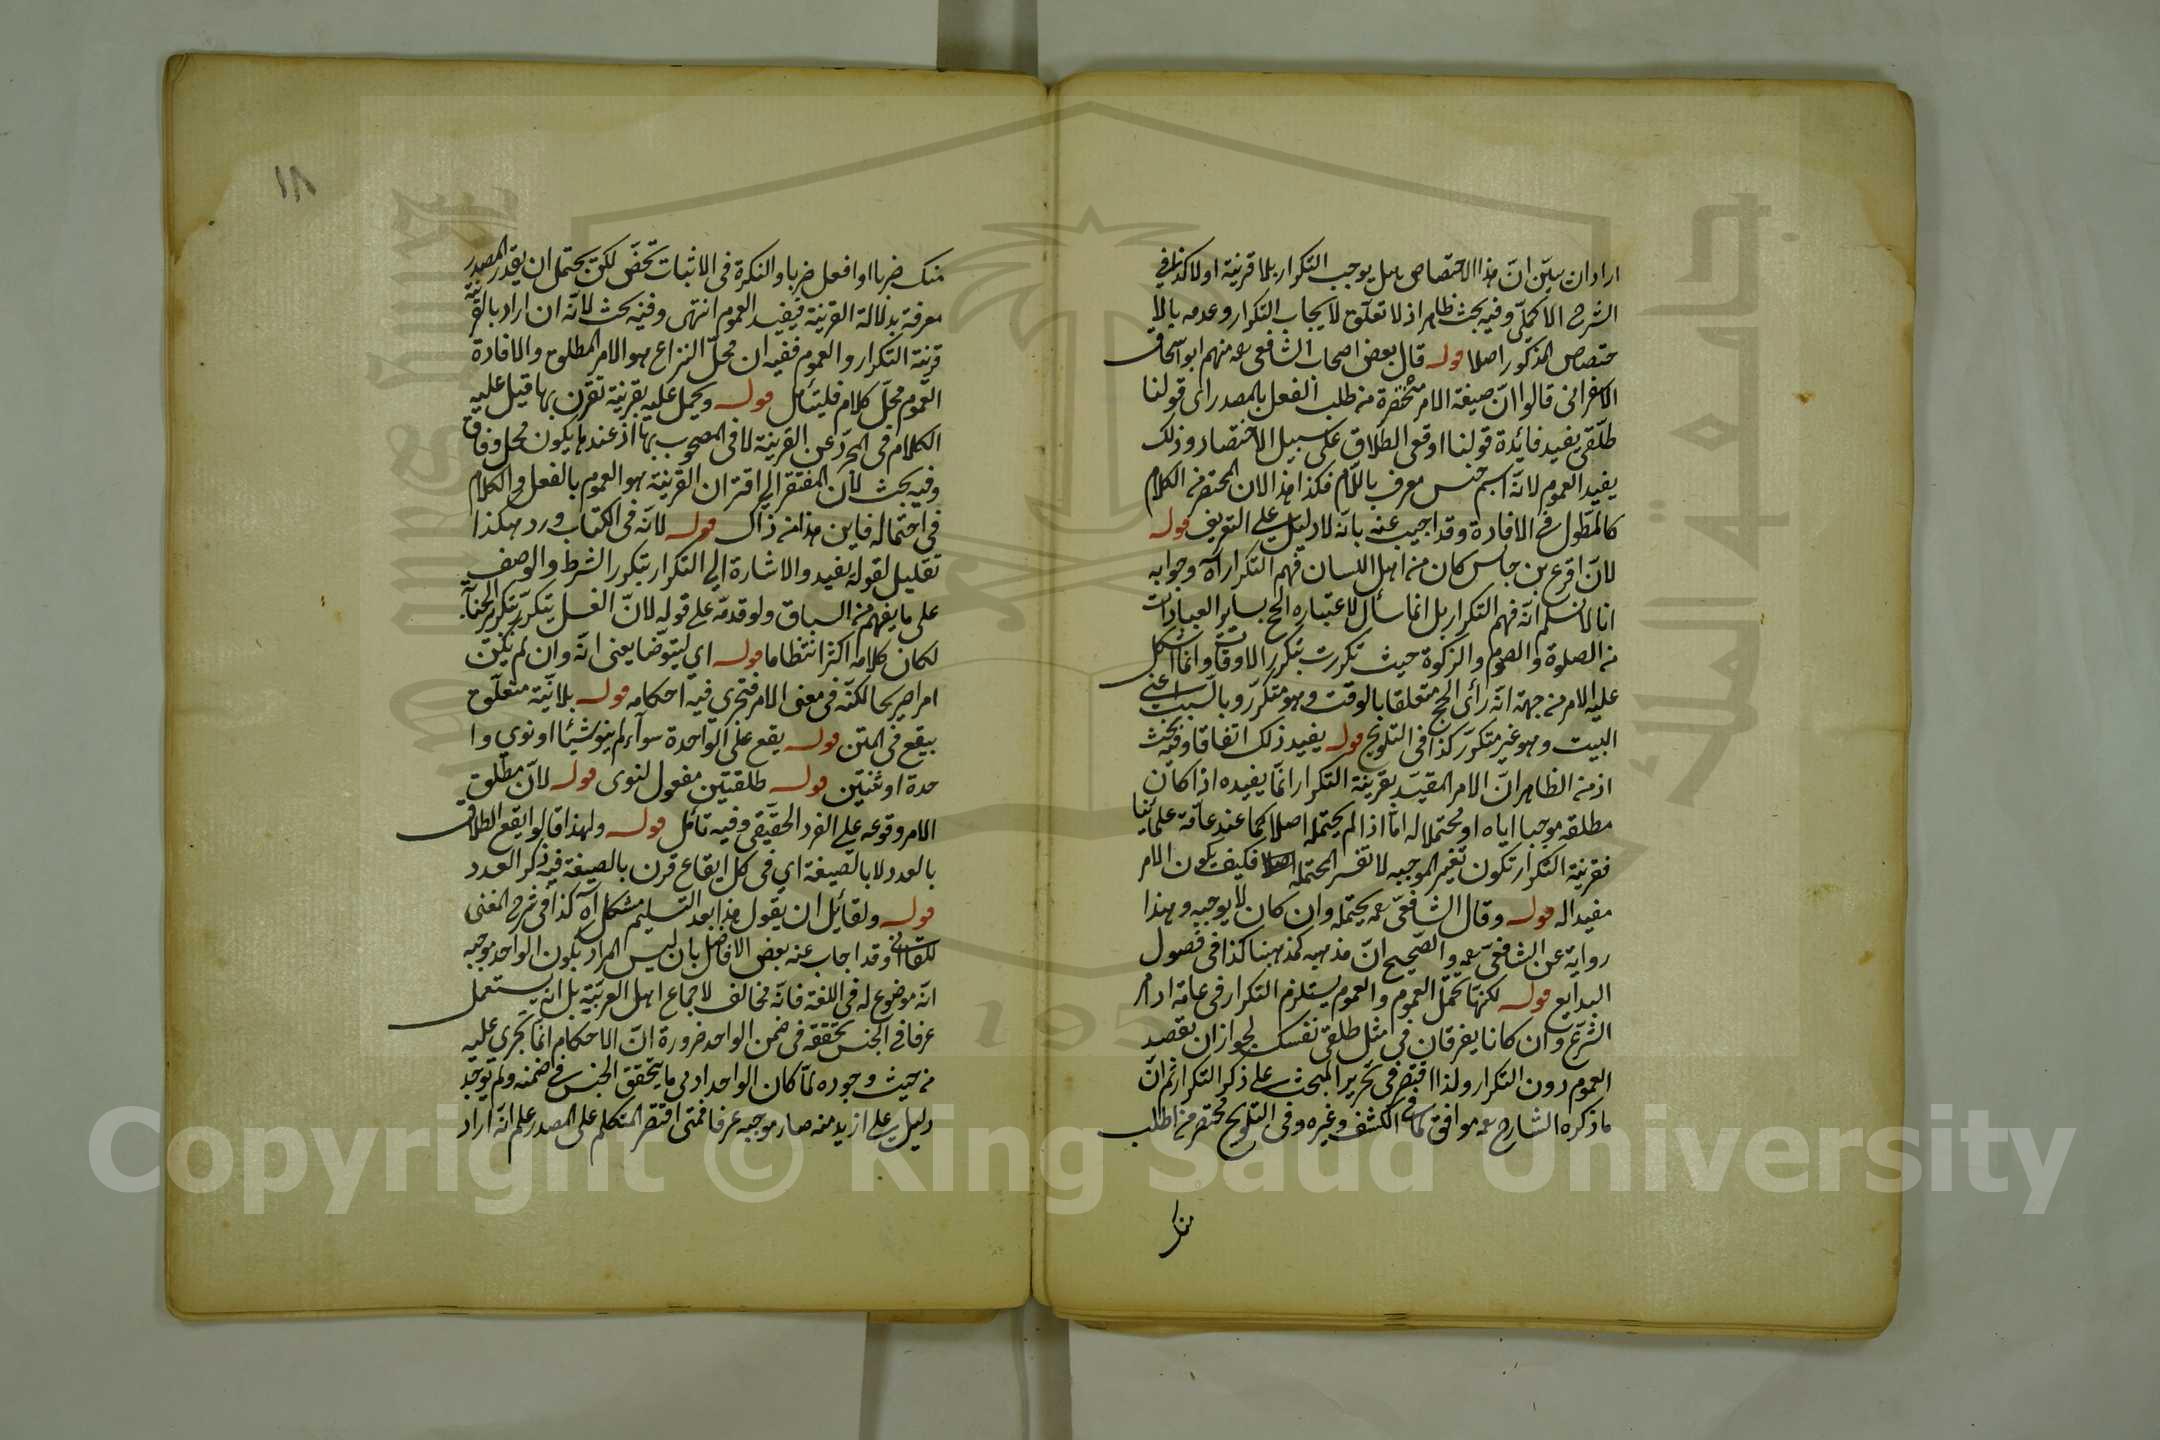 اراد ان يبين ان هذا الاختصاص هل يوجب التكرار بلا قرينة اولا كذا في
الشرح الاكملي وفيه بحث ظاهر اذ لا تعلق لايجاب التكرار وعدمه بالا
ختصاص المذكور اصلا قوله قال بعض اصحاب الشافعي رحمه منهم ابو اسحاق
الاسفرائني قالوا ان صيغة الامر مختصرة من طلب الفعل بالمصدر اى قولنا
طلقي يفيد فائدة قولنا اوقعي الطلاق على سبيل الاختصار وذلك
يفيد العموم لانه اسم جنس معرف باللام فكذا هذا لان المختصر من الكلام
كالمطول في الافادة وقد اجيب عنه بانه لا دليل على التعريف قوله
لان اقرع بن حابس كان من اهل اللسان فهم التكرار آه وجوابه
انا لا نسلم انه فهم التكرار بل انما سأل لاعتباره الحج بساير العبادات
من الصلوة والصوم والزكوة حيث تكررت بتكرر الاوقات وانما اشكل
عليه الامر من جهة انه رأى الحج متعلقا بالوقت وهو متكرر وبالسبب اعني
البيت وهو غير متكرر كذا في التلويح قوله يفيد ذلك اتفاقا وفيه بحث
اذ من الظاهر ان الامر المقيد بقرينة التكرار انما يفيده اذا كان
مطلقه موجبا اياه او محتملا له اما اذا لم يحتمله اصلا كما عند عامة علمائنا
فقرينة التكرار تكون تغير الموجبه لا تفسر المحتمله فكيف يكون الامر
مفيدا له قوله وقال الشافعي رحمه يحتمله وان كان لا يوجبه وهذا
رواية عن الشافعي رحمه والصحيح ان مذهبه كمذهبنا كذا في فصول
البدايع قوله لكنها تحمل العموم والعموم يستلزم التكرار في عامة اوامر
الشرع وان كانا يفرقان في مثل طلقي نفسك لجواز ان يقصد
العموم دون التكرار ولذا اقتصر في تحرير المبحث على ذكر التكرار ثم ان
ما ذكره الشارح رحمه موافق لما في الكشف وغيره وفي التلويح مختصر من اطلب
منك
١٨
منك ضربا او افعل ضربا والنكرة في الاثبات تخص لكن يحتمل ان يقدر المصدر
معرفة بدلالة القرينة فيفيد العموم انتهى وفيه بحث لانه ان اراد بالقرينة
قرينة التكرار والعموم ففيه ان محل النزاع هو الامر المطلق والافادة
العموم محل كلام فليتأمل قوله ويحمل عليه بقرينة تقرن بها قيل عليه
الكلام في المجرد عن القرينة لا في المصحوب بها اذ عندها يكون محل وفاق
وفيه بحث لان المفتقر الى اقتران القرينة هو العموم بالفعل والكلام
في احتماله فاين هذا من ذاك قوله لانه في الكتاب ورد هكذا
تقليل لقوله يفيد والاشارة الى التكرار بتكرر الشرط والوصف
على ما يفهم من السباق ولو قدمه على قوله لان الغسل يتكرر بتكرر الجنابة
لكان كلامه اكثر انتظاما قوله اي ليتوضأ يعني انه وان لم يكن
امرا صريحا لكنه في معنى الامر فتجرى فيه احكامه قوله بلا نية متعلق
بيقع في المتن قوله يقع على الواحدة سواء لم ينو شيئا او نوى وا
حدة او ثنتين قوله طلقتين مفعول لنوى قوله لان مطلق
الامر وقوعه على الفرد الحقيقي وفيه تأمل قوله ولهذا قالوا يقع الطلاق
بالعدد لا بالصيغة اي في كل ايقاع قرن بالصيغة فيه ذكر العدد
قوله ولقائل ان يقول هذا بعد التسليم مشكل آه كذا في شرح المغني
للقاآني وقد اجاب عنه بعض الافاضل بان ليس المراد بكون الواحد موجبه
انه موضوع له في اللغة فانه مخالف لاجماع اهل العربية بل انه يستعمل
عرفا في الجنس بتحققه في ضمن الواحد ضرورة ان الاحكام انما تجرى عليه
من حيث وجوده لما كان الواحد ادنى ما يتحقق الجنس في ضمنه ولم توجد
دليل على ازيد منه صار موجبه عرفا فمتى اقتصر المتكلم على المصدر علم انه اراد
Copyright © King Saud University
جامعة الملك سعود
1957